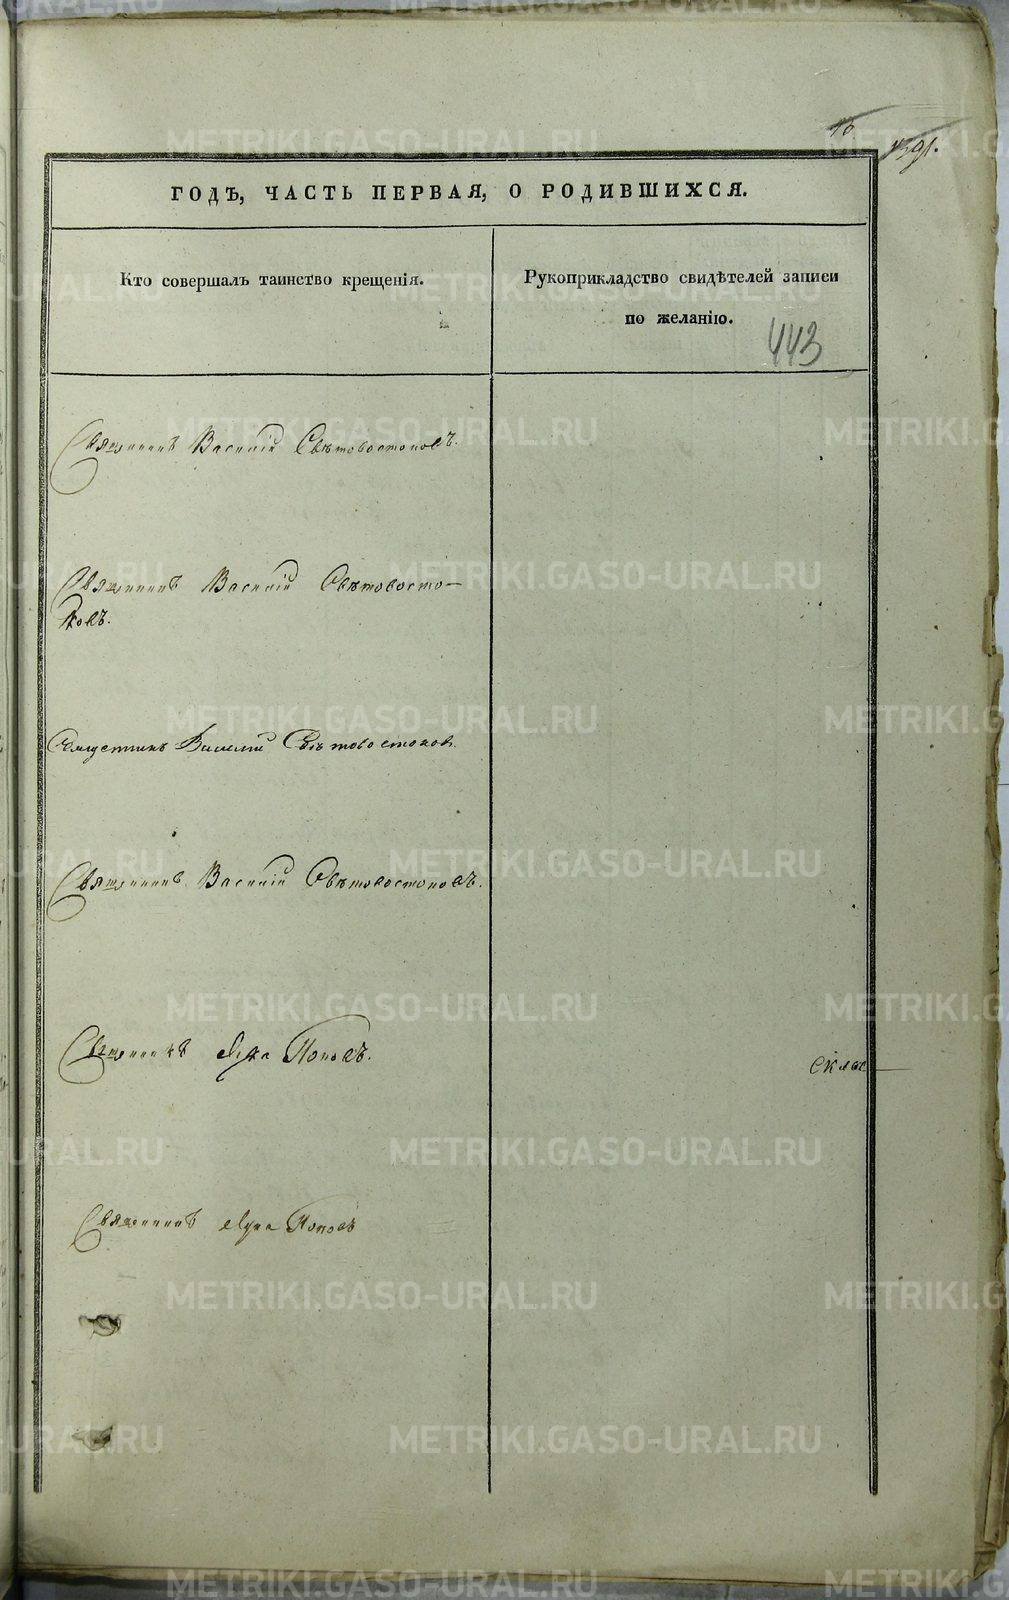 1391.
ГОДЪ, ЧАСТЬ ПЕРВАЯ, О РОДИВШИХСЯ.
Кто совершалъ таинство крещенія.
Рукоприкладство свидѣтелей записи
по желанію.
443
Священникъ Василій Свѣтовостоковъ.
Священникъ Василій Свѣтовосто-
ковъ.
Василій Свѣтовостоков.
Священникъ Василій Свѣтовостоковъ.
Священникъ Лука Поповъ.
Священникъ Лука Поповъ
METRIKI.GASO-URAL.RU